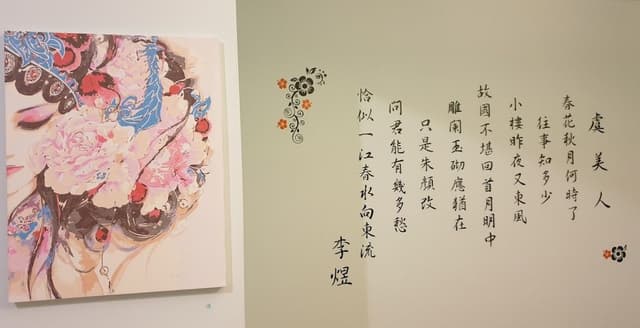 虞美人
春花秋月何時了
往事知多少
小樓昨夜又東風
故國不堪回首月明中
雕闌玉砌應猶在
只是朱顏改
問君能有幾多愁
恰似一江春水向東流
李煜